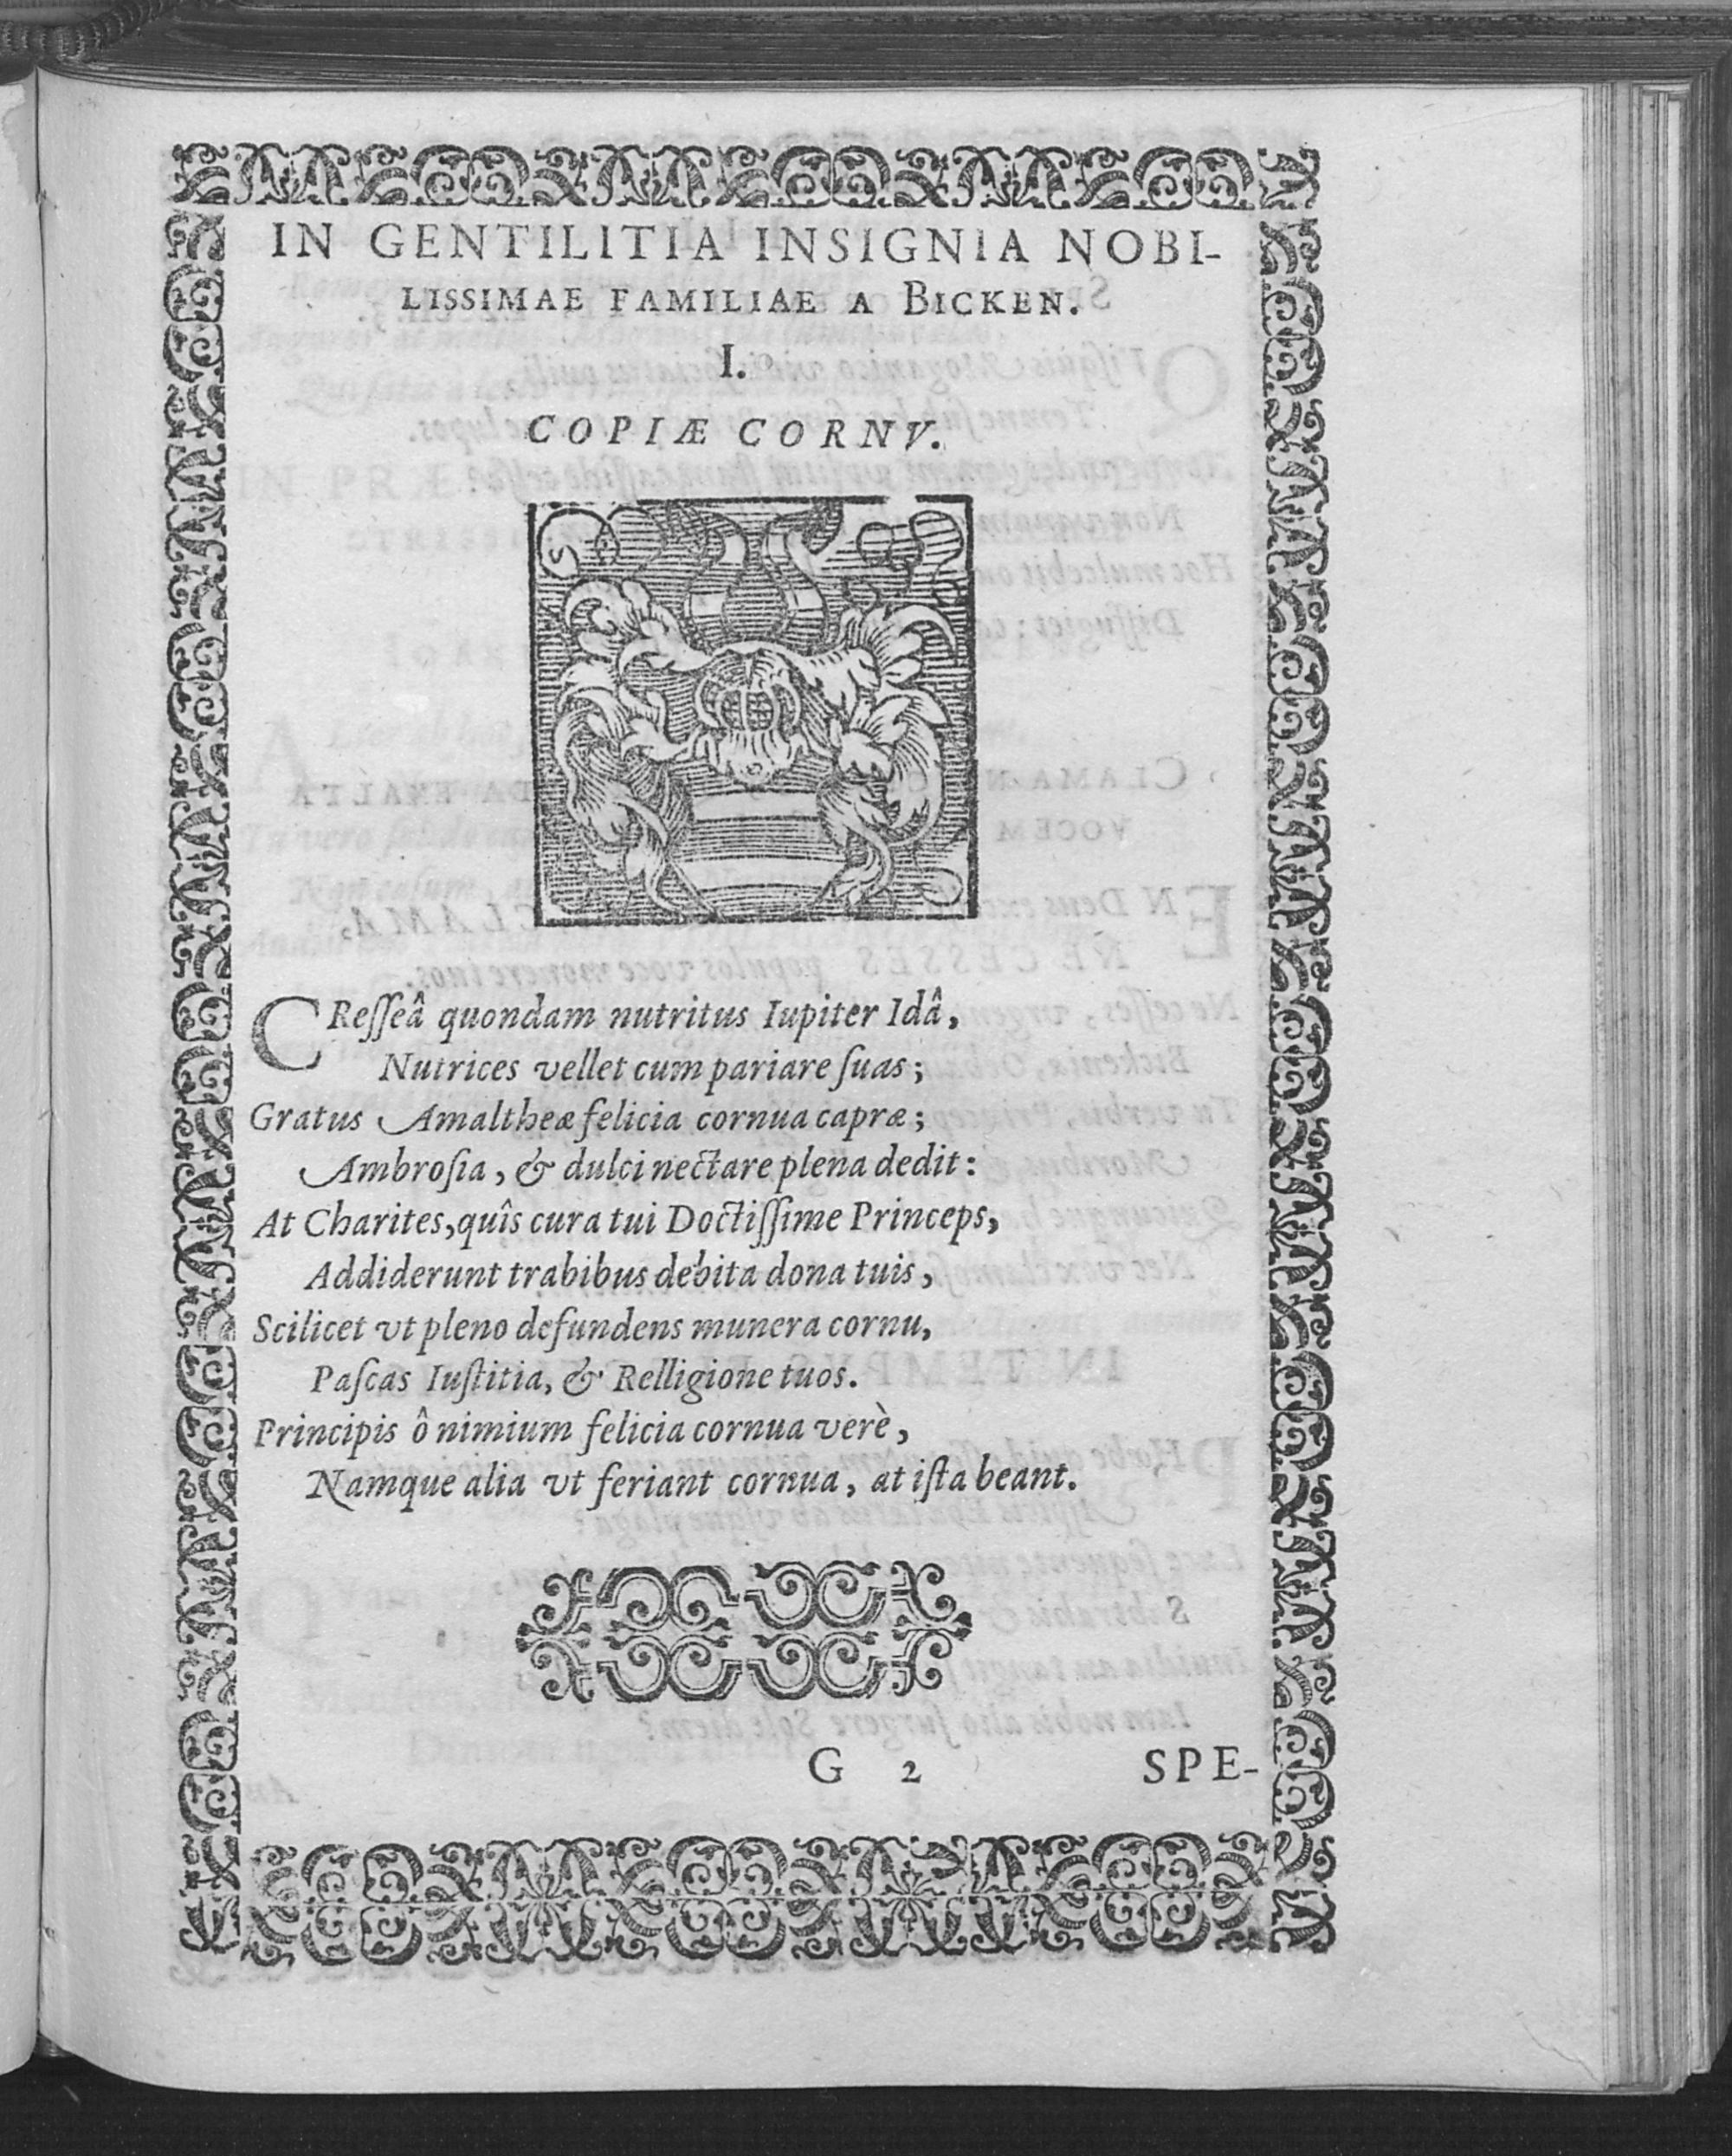 IN GENTILITIA INSIGNIA NOBI-
LISSIMAE FAMILIAE A BICKEN.
I.
COPIÆ CORNV.
CReſſeâ quondam nutritus Iupiter Idâ,
Nutrices vellet cum pariare ſuas;
Gratus Amaltheæ felicia cornua capræ;
Ambroſia, & dulci nectare plena dedit:
At Charites, quîs cura tui Doctiſſime Princeps,
Addiderunt trabibus debita dona tuis,
Scilicet vt pleno defundens munera cornu,
Paſcas Iuſtitia, & Relligione tuos.
Principis ô nimium felicia cornua verè,
Namque alia vt feriant cornua, at iſta beant.
G 2 SPE-